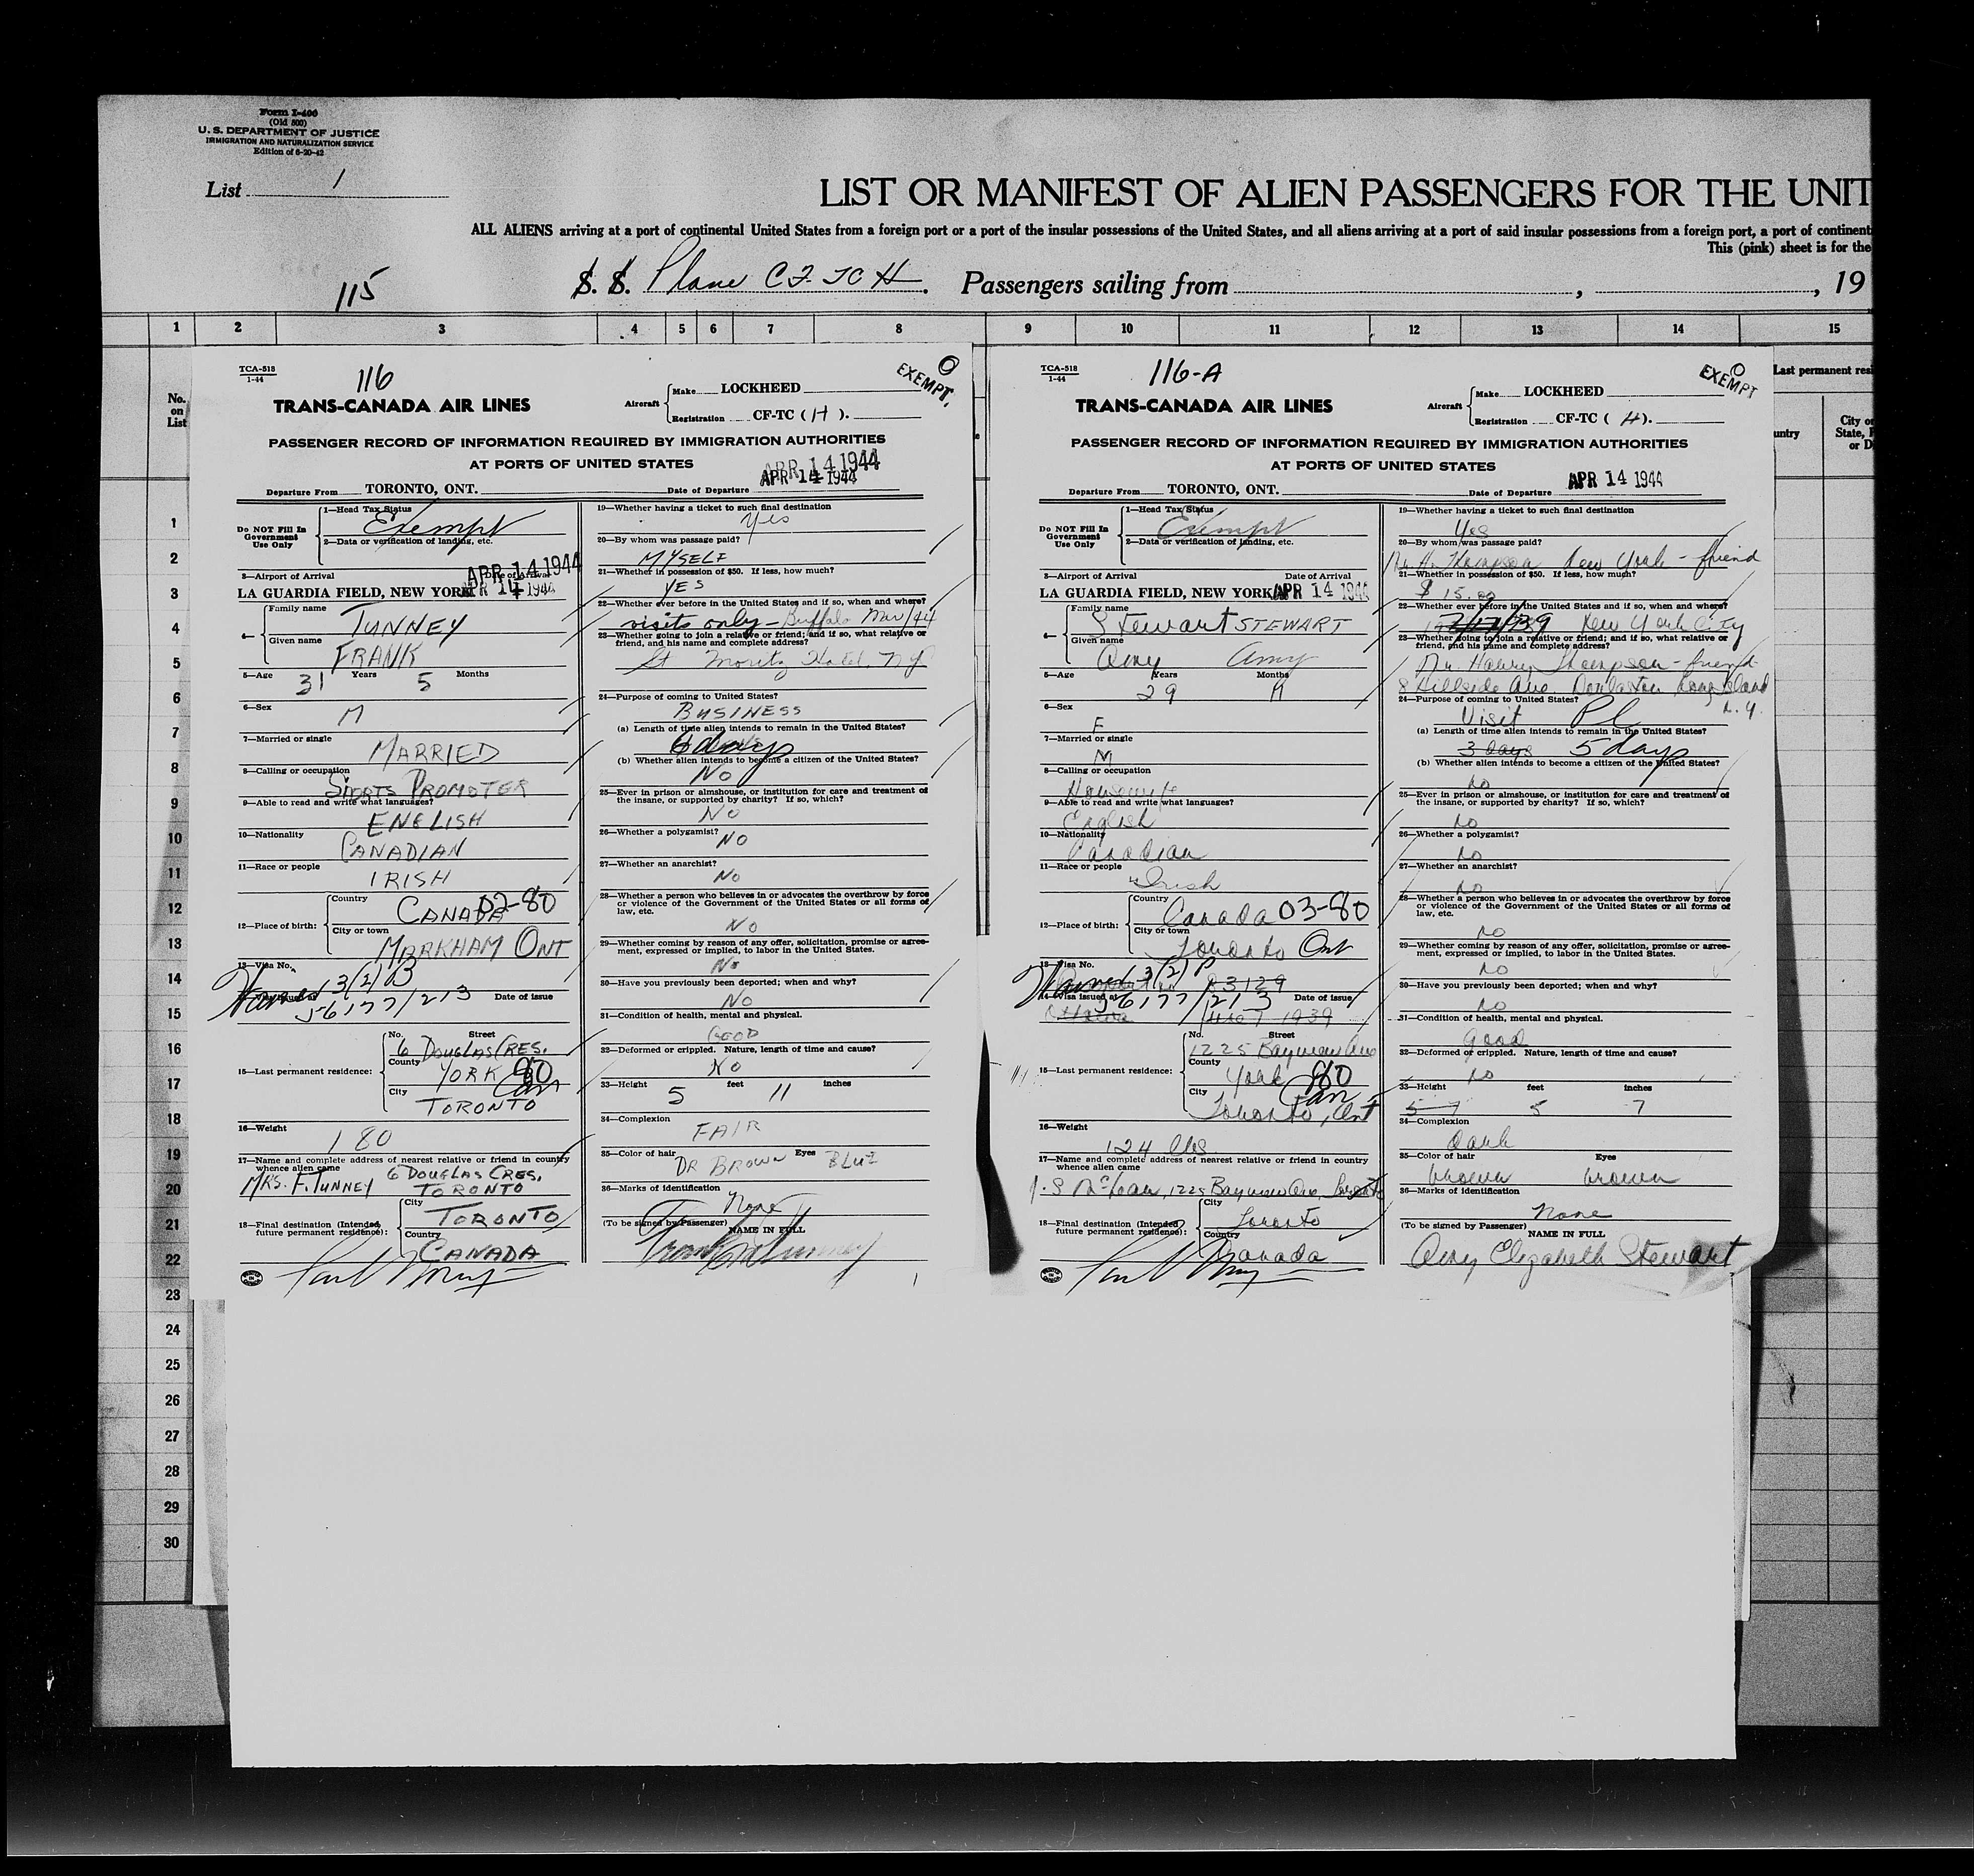 Form I-400
(Old 500)
U. S. DEPARTMENT OF JUSTICE
IMMIGRATION AND NATURALIZATION SERVICE
Edition of 6-20-42
List 1
LIST OR MANIFEST OF ALIEN PASSENGERS FOR THE UNIT
ALL ALIENS arriving at a port of continental United States from a foreign port or a port of the insular possessions of the United States, and all aliens arriving at a port of said insular possessions from a foreign port, a port of continent
This (pink) sheet is for the
115
S. S. Plane CF-TCH. Passengers sailing from , , 19
1 2 3 4 5 6 7 8 9 10 11 12 13 14 15
No. on List
Last permanent resi
untry
City or
State, P
or D
1
2
3
4
5
6
7
8
9
10
11
12
13
14
15
16
17
18
19
20
21
22
23
24
25
26
27
28
29
30
TCA-518
1-44
116
EXEMPT.
TRANS-CANADA AIR LINES
Aircraft
Make LOCKHEED
Registration CF-TC ( H ).
PASSENGER RECORD OF INFORMATION REQUIRED BY IMMIGRATION AUTHORITIES
AT PORTS OF UNITED STATES
APR 14 1944
APR 14 1944
Departure From TORONTO, ONT. Date of Departure
Do NOT Fill In Government Use Only
1—Head Tax Status
Exempt
2—Data or verification of landing, etc.
APR 14 1944
3—Airport of Arrival Date of Arrival
LA GUARDIA FIELD, NEW YORK APR 14 1944
4— Family name TUNNEY
Given name FRANK
5—Age 31 Years 5 Months
6—Sex M
7—Married or single MARRIED
8—Calling or occupation SPORTS PROMOTER
9—Able to read and write what languages?
ENGLISH
10—Nationality CANADIAN
11—Race or people IRISH
12—Place of birth: Country CANADA 02-80
City or town MARKHAM ONT
13—Visa No.
3(2) B
14—Visa issued at Date of issue
56177/213
15—Last permanent residence:
No. Street 6 DOUGLAS CRES.
County YORK 80
Can
City TORONTO
16—Weight 180
17—Name and complete address of nearest relative or friend in country whence alien came
MRS. F. TUNNEY 6 DOUGLAS CRES. TORONTO
18—Final destination (Intended future permanent residence):
City TORONTO
Country CANADA
19—Whether having a ticket to such final destination
Yes
20—By whom was passage paid?
MYSELF
21—Whether in possession of $50. If less, how much?
YES
22—Whether ever before in the United States and if so, when and where?
visits only - Buffalo Mar/44
23—Whether going to join a relative or friend; and if so, what relative or friend, and his name and complete address?
St Moritz Hotel, NY
24—Purpose of coming to United States?
BUSINESS
(a) Length of time alien intends to remain in the United States?
6 days
(b) Whether alien intends to become a citizen of the United States?
NO
25—Ever in prison or almshouse, or institution for care and treatment of the insane, or supported by charity? If so, which?
NO
26—Whether a polygamist?
NO
27—Whether an anarchist?
NO
28—Whether a person who believes in or advocates the overthrow by force or violence of the Government of the United States or all forms of law, etc.
NO
29—Whether coming by reason of any offer, solicitation, promise or agreement, expressed or implied, to labor in the United States.
No
30—Have you previously been deported; when and why?
NO
31—Condition of health, mental and physical.
GOOD
32—Deformed or crippled. Nature, length of time and cause?
NO
33—Height 5 feet 11 inches
34—Complexion FAIR
35—Color of hair DR BROWN Eyes BLUE
36—Marks of identification
None
(To be signed by Passenger) NAME IN FULL
TCA-518
1-44
116-A
EXEMPT
TRANS-CANADA AIR LINES
Aircraft
Make LOCKHEED
Registration CF-TC ( H).
PASSENGER RECORD OF INFORMATION REQUIRED BY IMMIGRATION AUTHORITIES
AT PORTS OF UNITED STATES
Departure From TORONTO, ONT. Date of Departure APR 14 1944
Do NOT Fill In Government Use Only
1—Head Tax Status
Exempt
2—Data or verification of landing, etc.
3—Airport of Arrival Date of Arrival
LA GUARDIA FIELD, NEW YORK APR 14 1944
4— Family name Stewart STEWART
Given name Amy Amy
5—Age 29 Years Months
6—Sex F
7—Married or single M
8—Calling or occupation Housewife
9—Able to read and write what languages?
English
10—Nationality Canadian
11—Race or people Irish
12—Place of birth: Country Canada 03-80
City or town Toronto Ont
13—Visa No.
3(2) P
23129
14—Visa issued at Date of issue
56177/213
Ottawa 1939
15—Last permanent residence:
No. Street 1225 Bayview Ave
County York 80
Can
City Toronto, Ont
16—Weight 124 lbs
17—Name and complete address of nearest relative or friend in country whence alien came
J. S McLean, 1225 Bayview Ave, Toronto
18—Final destination (Intended future permanent residence):
City Toronto
Country Canada
19—Whether having a ticket to such final destination
Yes
20—By whom was passage paid?
Mr. H. Thompson New York - friend
21—Whether in possession of $50. If less, how much?
$ 15.00
22—Whether ever before in the United States and if so, when and where?
New York City
23—Whether going to join a relative or friend; and if so, what relative or friend, and his name and complete address?
Mr. Henry Thompson - friend
8 Hillside Ave. Douglaston Long Island N.Y.
24—Purpose of coming to United States?
Visit
(a) Length of time alien intends to remain in the United States?
3 days 5 days
(b) Whether alien intends to become a citizen of the United States?
no
25—Ever in prison or almshouse, or institution for care and treatment of the insane, or supported by charity? If so, which?
no
26—Whether a polygamist?
no
27—Whether an anarchist?
no
28—Whether a person who believes in or advocates the overthrow by force or violence of the Government of the United States or all forms of law, etc.
no
29—Whether coming by reason of any offer, solicitation, promise or agreement, expressed or implied, to labor in the United States.
no
30—Have you previously been deported; when and why?
no
31—Condition of health, mental and physical.
good
32—Deformed or crippled. Nature, length of time and cause?
no
33—Height 5 7 5 feet 7 inches
34—Complexion dark
35—Color of hair brown Eyes brown
36—Marks of identification
none
(To be signed by Passenger) NAME IN FULL
Amy Elizabeth Stewart